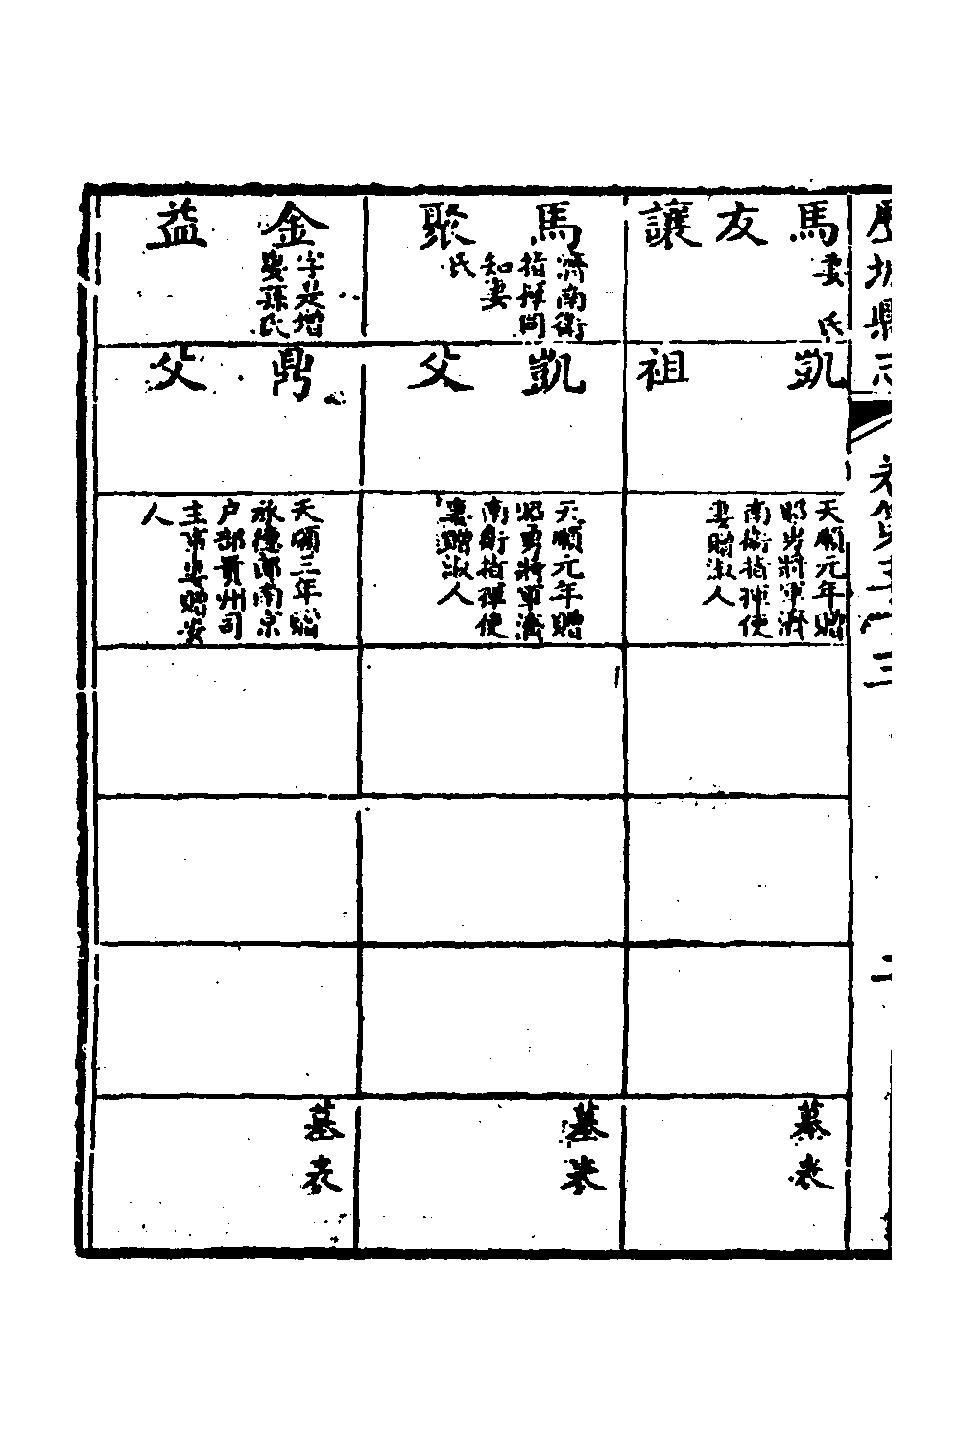 馬友讓
妻 氏
凱祖
天順元年贈
昭勇將軍濟
南衛指揮使
妻贈淑人
墓表
馬聚
濟南衛
指揮同
知妻
氏
凱父
天順元年贈
昭勇將軍濟
南衛指揮使
妻贈淑人
墓表
金益
孫氏
鼎父
天順三年贈
承德郎南京
户部貴州司
主事妻贈安
人
墓表